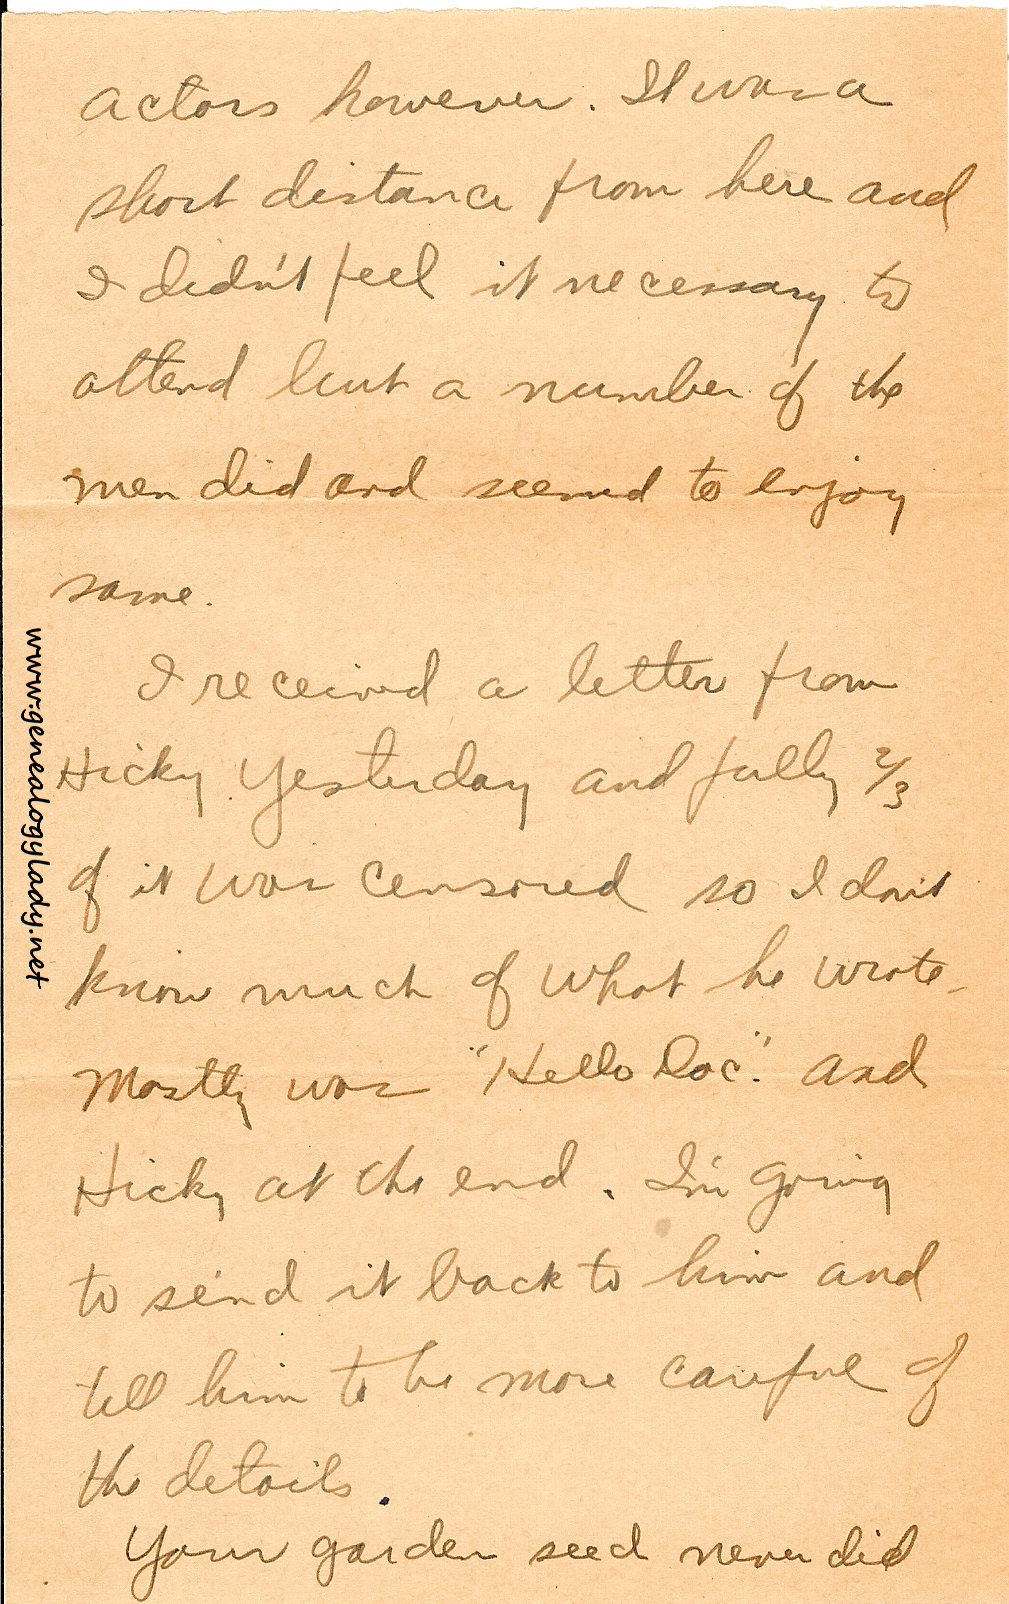 actors however. It was a
short distance from here and
I didn't feel it necessary to
attend but a number of the
men did and seemed to enjoy
same.
I received a letter from
Hicky yesterday and fully 2/3
of it was censored so I don't
know much of what he wrote.
Mostly was "Hello Doc". and
Hicky at the end. I'm going
to send it back to him and
tell him to be more careful of
the details.
Your garden seed never did
www.genealogylady.net